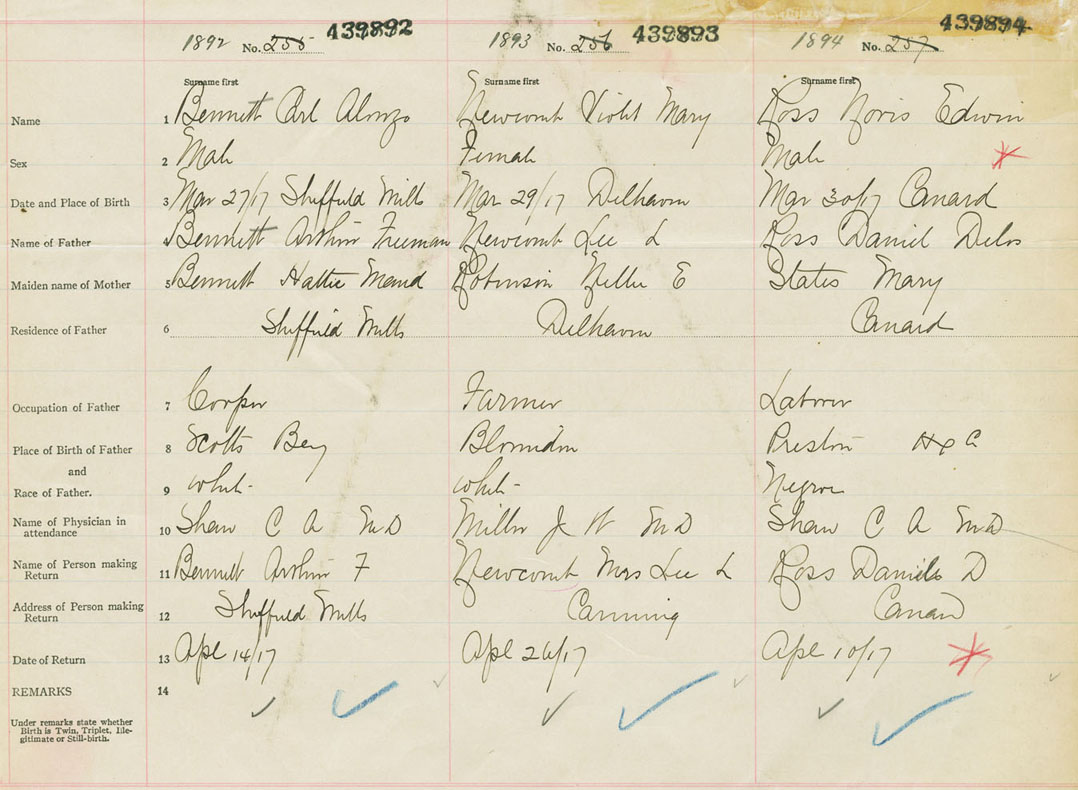 1892 No. 255 439892 1893 No. 256 439893 1894 No. 257 439894
Surname first Surname first Surname first
Name 1 Bennett Carl Alonzo Newcomb Violet Mary Ross Norris Edwin
Sex 2 Male Female Male
Date and Place of Birth 3 Mar 27/17 Sheffield Mills Mar 29/17 Delhaven Mar 30/17 Canard
Name of Father 4 Bennett Arthur Freeman Newcomb Lee L Ross Daniel Delos
Maiden name of Mother 5 Bennett Hattie Maud Robinson Nellie E States Mary
Residence of Father 6 Sheffield Mills Delhaven Canard
Occupation of Father 7 Cooper Farmer Laborer
Place of Birth of Father 8 Scotts Bay Blomidon Preston Hx Co
and
Race of Father. 9 white white Negro
Name of Physician in attendance 10 Shaw C A M D Miller J W M D Shaw C A M D
Name of Person making Return 11 Bennett Arthur F Newcomb Mrs Lee L Ross Daniels D
Address of Person making Return 12 Sheffield Mills Canning Canard
Date of Return 13 Apl 14/17 Apl 26/17 Apl 10/17
REMARKS 14
Under remarks state whether
Birth is Twin, Triplet, Ille-
gitimate or Still-birth.